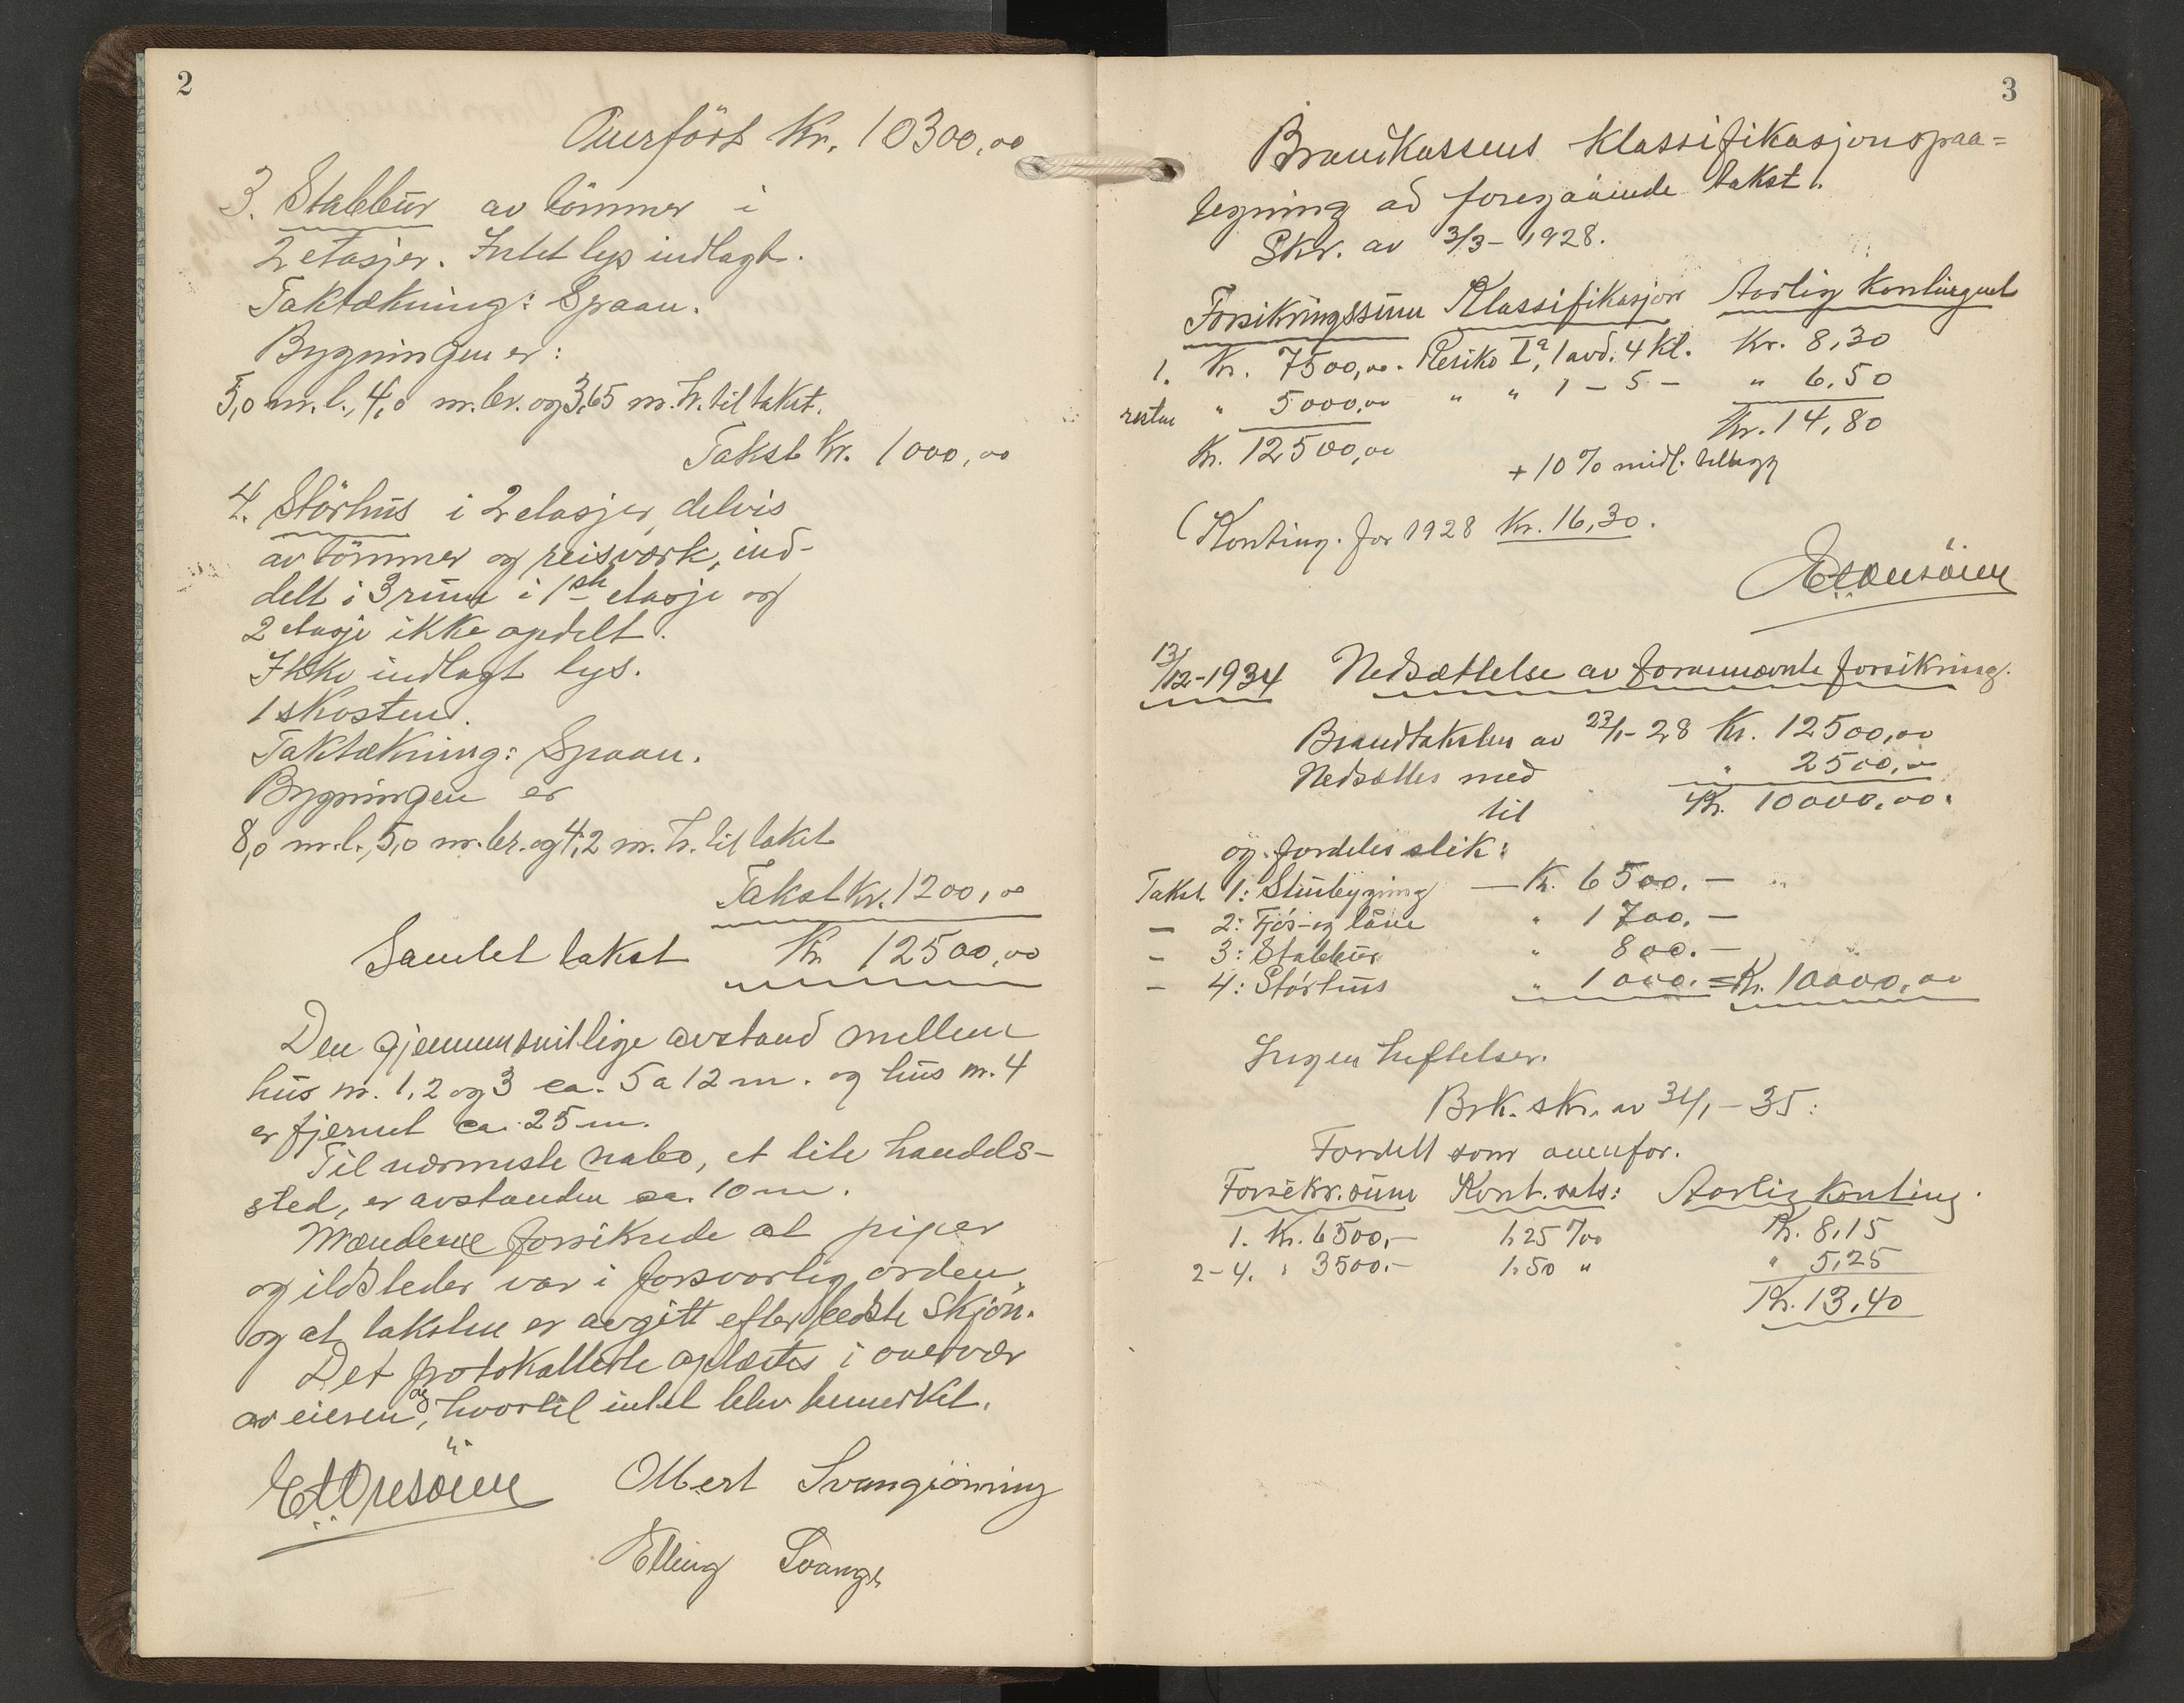 2
Overført Kr. 10300,00
3. Stabbur av tömmer i
2 etasjer. Intet lys indlagt.
Taktækning: Spaan.
Bygningen er:
5,0 m.l., 4,0 m.br. og 3,65 m.h. til takst.
Takst Kr. 1000,00
4. Störhus i 2 etasjer, delvis
av tömmer og reisværk, ind-
delt i 3 rum i 1ste etasje og
2 etasje ikke opdelt.
Ikke indlagt lys.
1 skosten.
Taktækning: Spaan.
Bygningen er
8,0 m.l., 5,0 m.br. og 4,2 m.h. til takst
Takst kr. 1200,00
Samlet takst Kr 12500,00
Den gjennemsnitlige avstand mellem
hus nr. 1, 2 og 3 ca. 5 a 12 m. og hus nr. 4
er fjernet ca. 25 m.
Til nærmeste nabo, et lite handels-
sted, er avstanden ca. 10 m.
Mændene forsikrede at piper
og ildsteder var i forsvarlig orden
og at taksten er avgitt efter bedste skjön.
Det protokollerte oplæstes i overvær
av eieren, hvortil intet blev bemerket.
Olbert Svangjörning
Elling Svange
3
Brandkassens klassifikasjonspaa-
tegning ad foregaäende takst.
Skr. av 3/3 - 1928.
Forsikringssum Klassifikasjon Aarlig Kontingent
1. Kr. 7500,00. Resiko Iª, 1 avd. 4 kl. Kr. 8,30
resten " 5000,00 " " 1 - 5 - " 6,50
Kr. 12500,00 Kr. 14,80
+ 10 % midl. tillegg
(Konting. for 1928 Kr. 16,30.
13/12-1934 Nedsættelse av forannævnte forsikring.
Brandtaksten av 23/1-28 Kr. 12500,00
Nedsættes med " 2500,-
til Kr. 10000,00.
og fordeles slik:
Takst 1: Stuebygning — Kr. 6500. —
— 2: Fjös- og låve " 1700. —
- 3: Stabbur " 800. —
- 4: Störhus " 1000. = Kr. 10000,00
Ingen heftelser.
Brk. skr. av 31/1 - 35:
Fordelt som ovenfor.
Forsikr.sum Kont. sats: Aarlig konting.
1. Kr. 6500,- 1,25 ‰ Kr. 8,15
2-4. " 3500.- 1,50 " " 5,25
Kr. 13,40